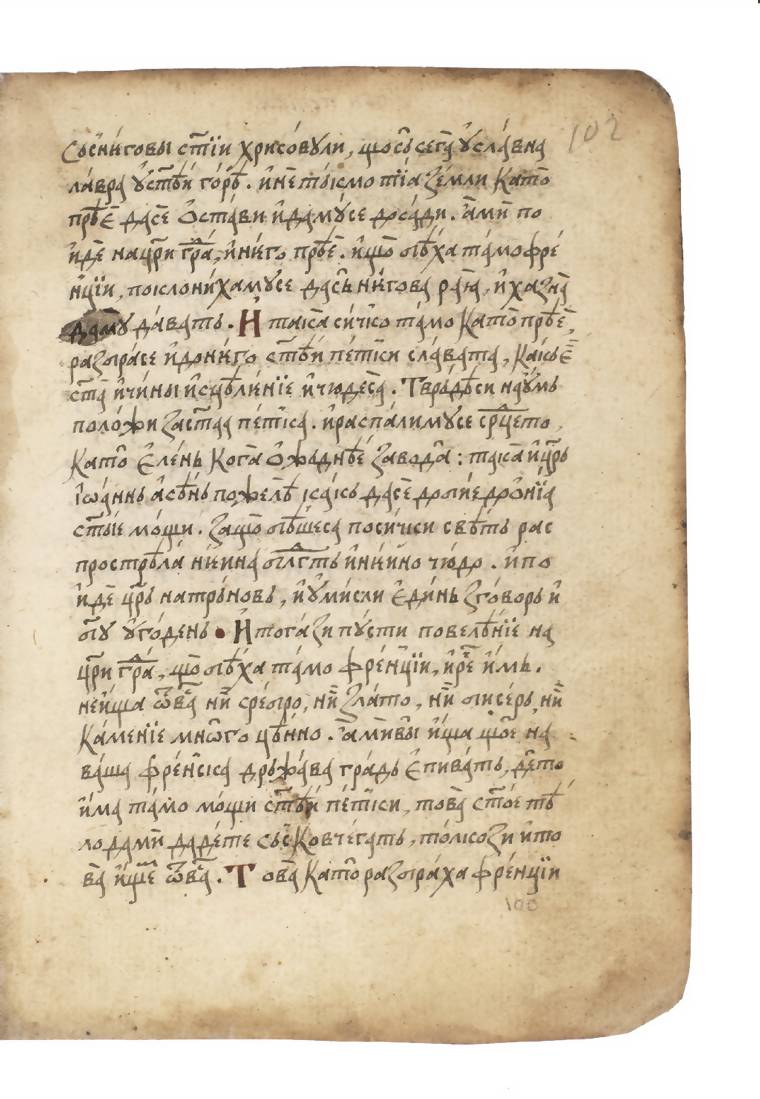 102
Съснеговы ст҃їи хрисовули, що сѹ сега ѹ славна
лавра ѹ ст҃ѣи горѣ. и не тъкмо тїа земли като
прѣ́ѐ да се ѡстави и да мѹ се досади. ами по
иде на цр҃и гра́, и него прѣ́ѐ. и що бѣха тамо фре
нцїи, поклониха мѹ се да сѹ негова раꙗ, и хазна
да мѹ дават. И така сичко тамо като прѣѐ,
разбра се и до него ст҃ѣи пе́тки славата, како ѐ
ст҃а и чины исцѣленїе и чюдеса. Твръдѣ си на ѹмь
положи за ст҃аа пе́тка. и распали мѹ се срⷣцето,
като єлень кога ѡжъднѣе за вода: така и цр҃ь
Іѡаннь асѣнь пожелѣ како да се допїе до онїа
ст҃ые мощи. Защо бѣше са по сички свѣть рас
прострѣла неина блг҃сть и неино чюдо. и по
иде цр҃ь на трънов, и ѹмисли єдинь зговорь и
б҃гѹ ѹгодень • И тогази пѹсти повелѣнїе на
цр҃и гра́, що бѣха тамо френцїи, и рѐ имь.
не ища ѿ ва́ нї сребро, нї злато, нї бисерь, нї
каменїе мнѡго цѣнно. ами вы ища що ѐ на
ваша френска дръжава градь єпивать, дето
има тамо мощи ст҃ѣи пе́тки, това ст҃ое тѣ
ло да ми дадете съсь ковчегать, толкози и то
ва ище ѿ ва́. Това като разбраха френцїи
100